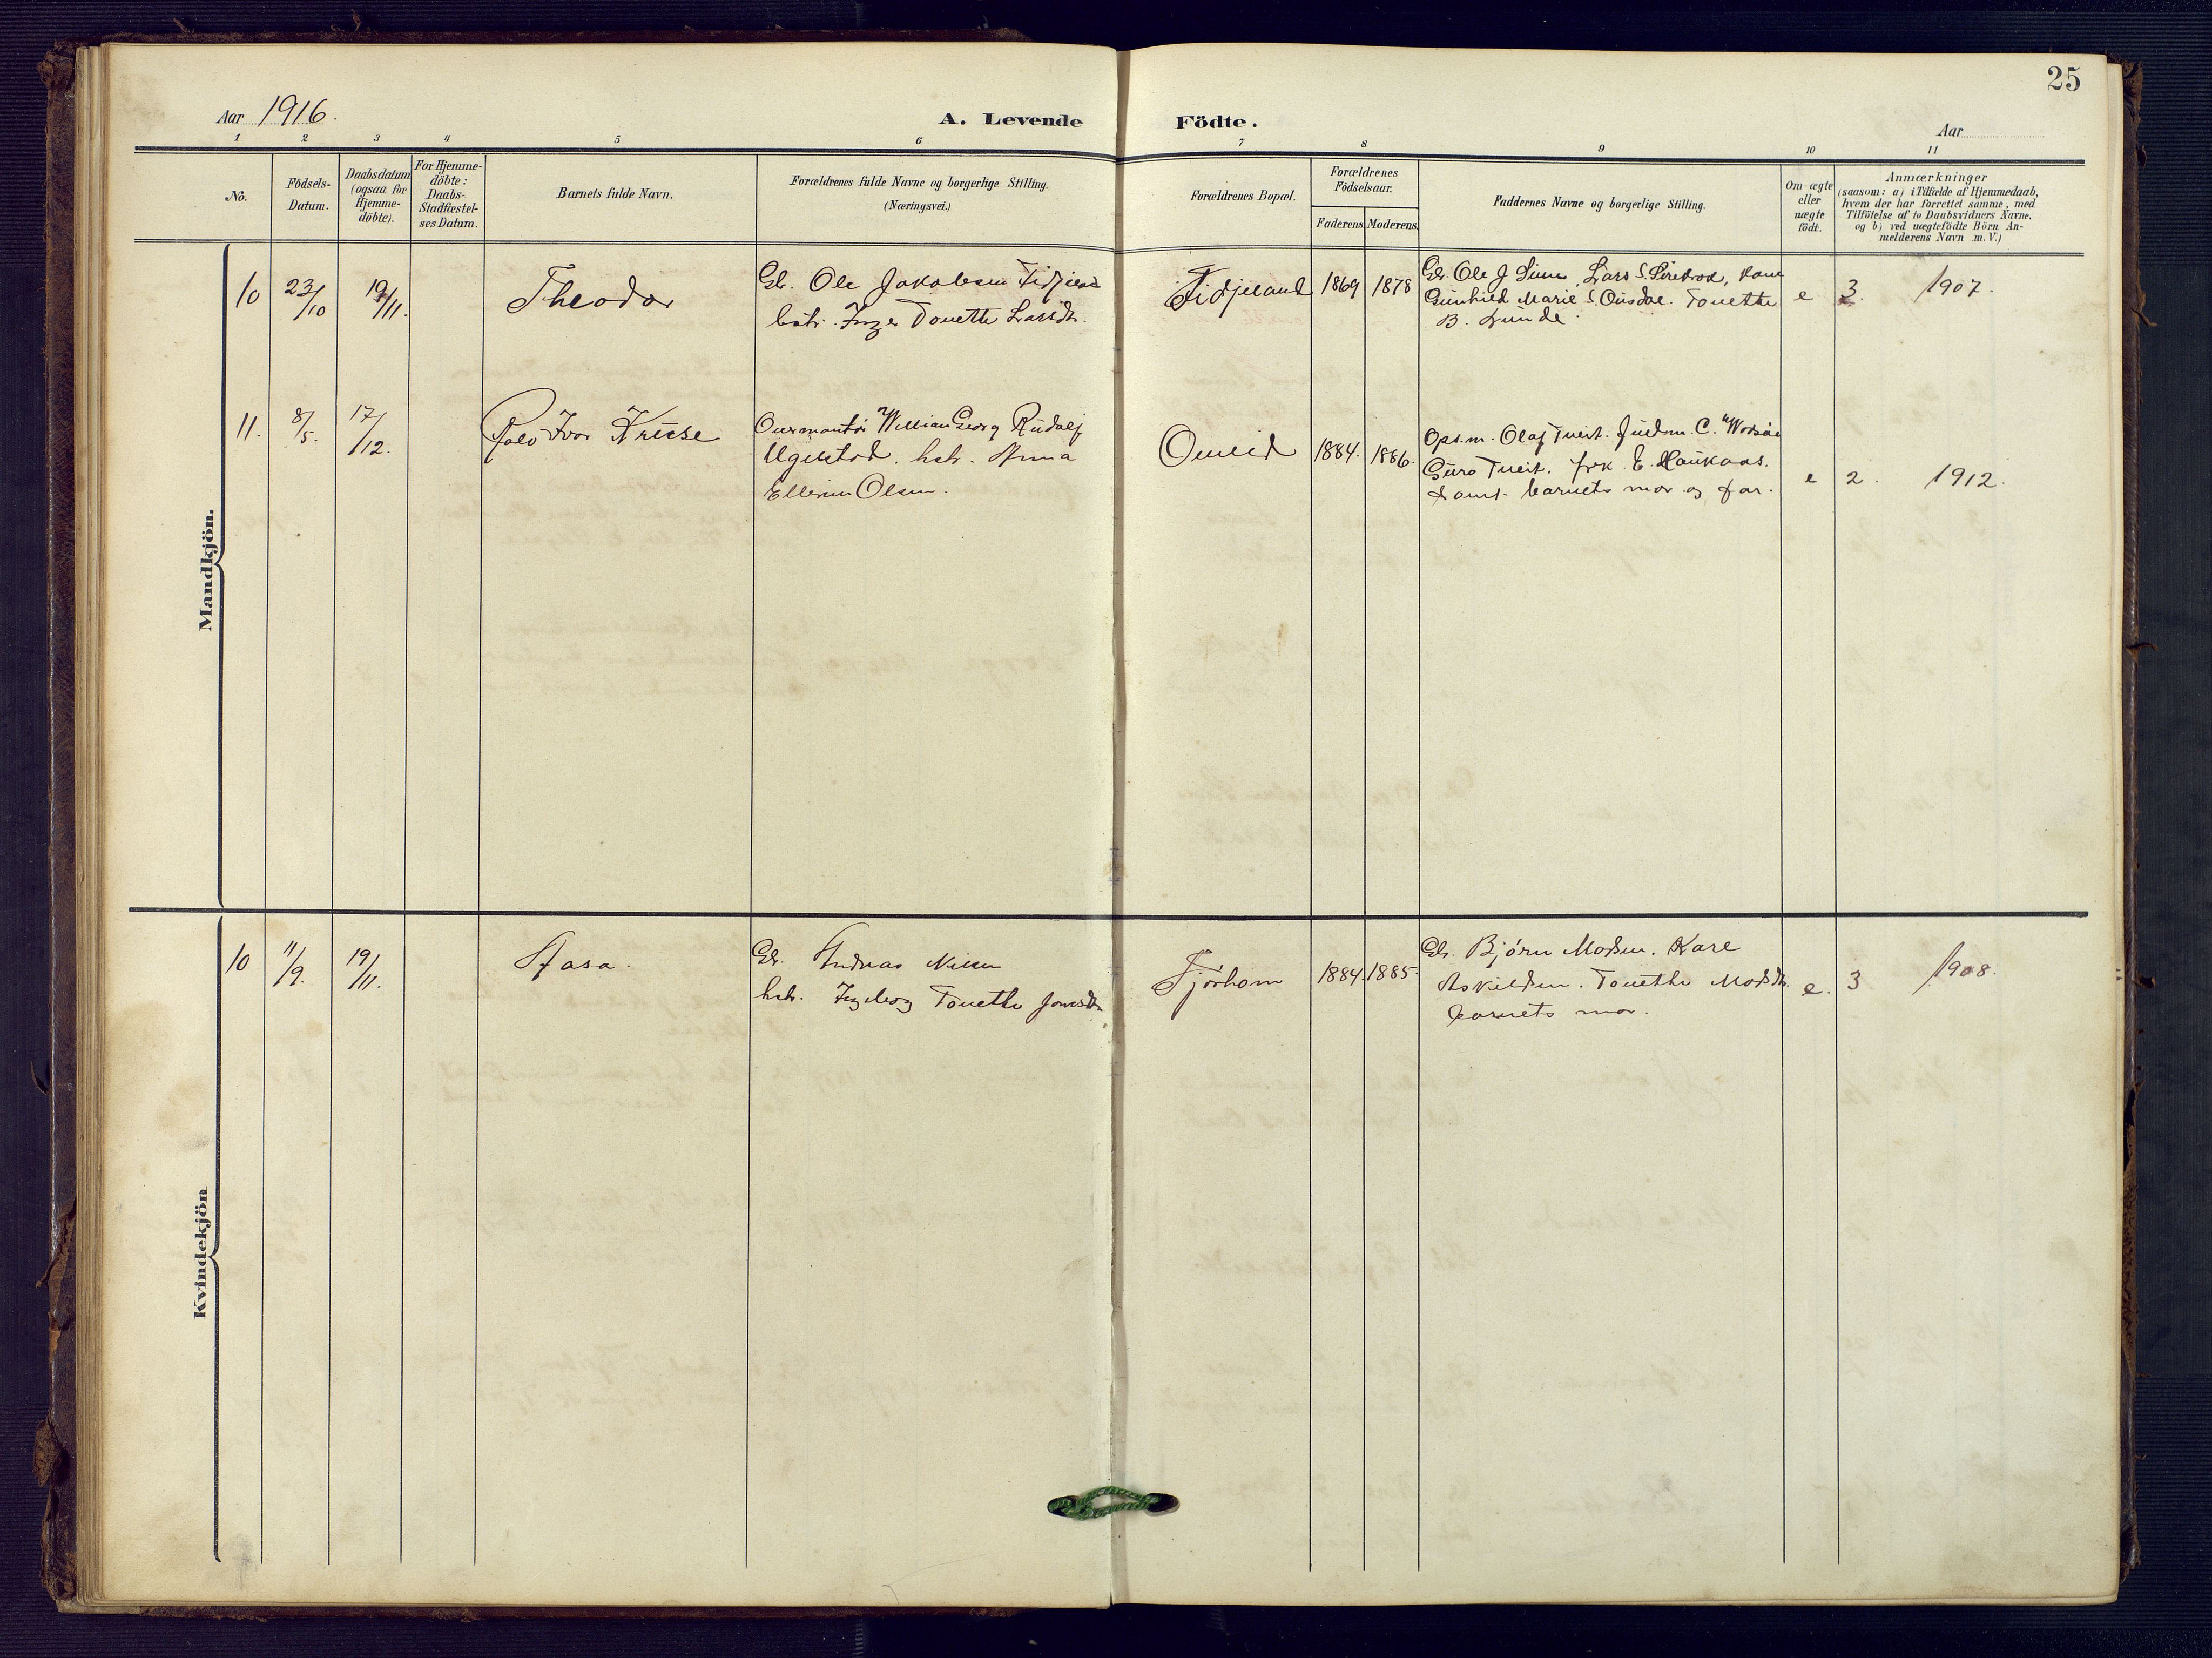 25
Aar 1916.
A. Levende Födte.
Aar
1 2 3 4 5 6 7 8 9 10 11
No.
Födsels-
Datum.
Daabsdatum
(ogsaa for
Hjemme-
döbte).
For Hjemme-
döbte:
Daabs-
Stadfæstel-
ses Datum.
Barnets fulde Navn.
Forældrenes fulde Navne og borgerlige Stilling.
(Næringsvei.)
Forældrenes Bopæl.
Forældrenes
Födselsaar.
Faderens. Moderens.
Faddernes Navne og borgerlige Stilling.
Om ægte
eller
uægte
födt.
Anmærkninger
(saasom: a) i Tilfælde af Hjemmedaab,
hvem der har forrettet samme, med
Tilföielse af to Daabsvidners Navne.
og b) ved uægtefödte Börn An-
melderens Navn m.V.)
Mandkjön.
10 23/10 19/11. Theodor
Gb. Ole Jakobsen Fidjeland
hstr. Inger Tonette Larsdtr.
Fidjeland 1869 1878
Gbr. Ole J Sinnes, Lars S. kone
Gunhild Marie S. Ousdal. Tonette
B. Lunde.
e 3. 1907.
11. 8/5. 17/12. Ivar
William Georg Rudolf
hstr. Anna
Olsen.
Omeid 1884. 1886.
Ops.m. Olaf Tveit. C.
Guro Tveit. frk. E. Haukaas.
samt barnets mor og far.
e 2. 1912.
Kvindekjön
10 11/9. 19/11. Aasa.
Gb. Andreas Nilsen
hstr. Ingeborg Tonette Jonasdtr.
Tjörhom 1884. 1885.
Gbr. Björn Madsen. Kare
Askildsen. Tonette Madsdtr.
barnets mor.
e. 3 1908.